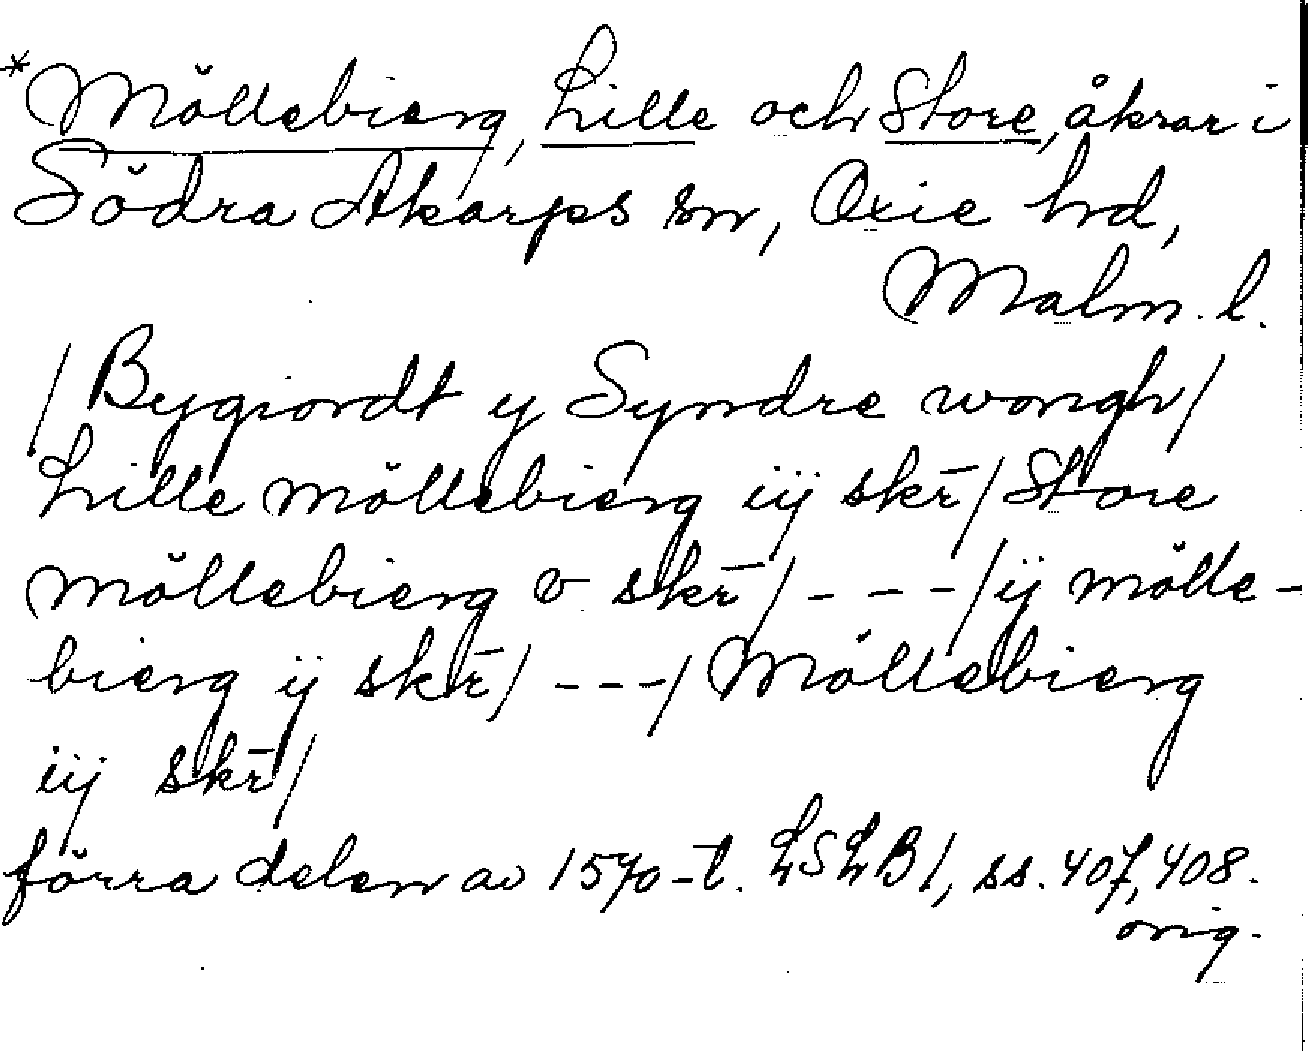 *Möllebierg, Lille och Store, åkrar i
Södra Åkarps sn, Oxie hd,
Malm. l.
/Bygiordt y Syndre wongh/
Lille möllebierg iij skr̄/Store
möllebierg v skr̄/---/ij mölle-
bierg ij skr̄/---/Möllebierg
iij skr̄/
förra delen av 1570-t. LSLB1, ss. 407, 408.
orig.